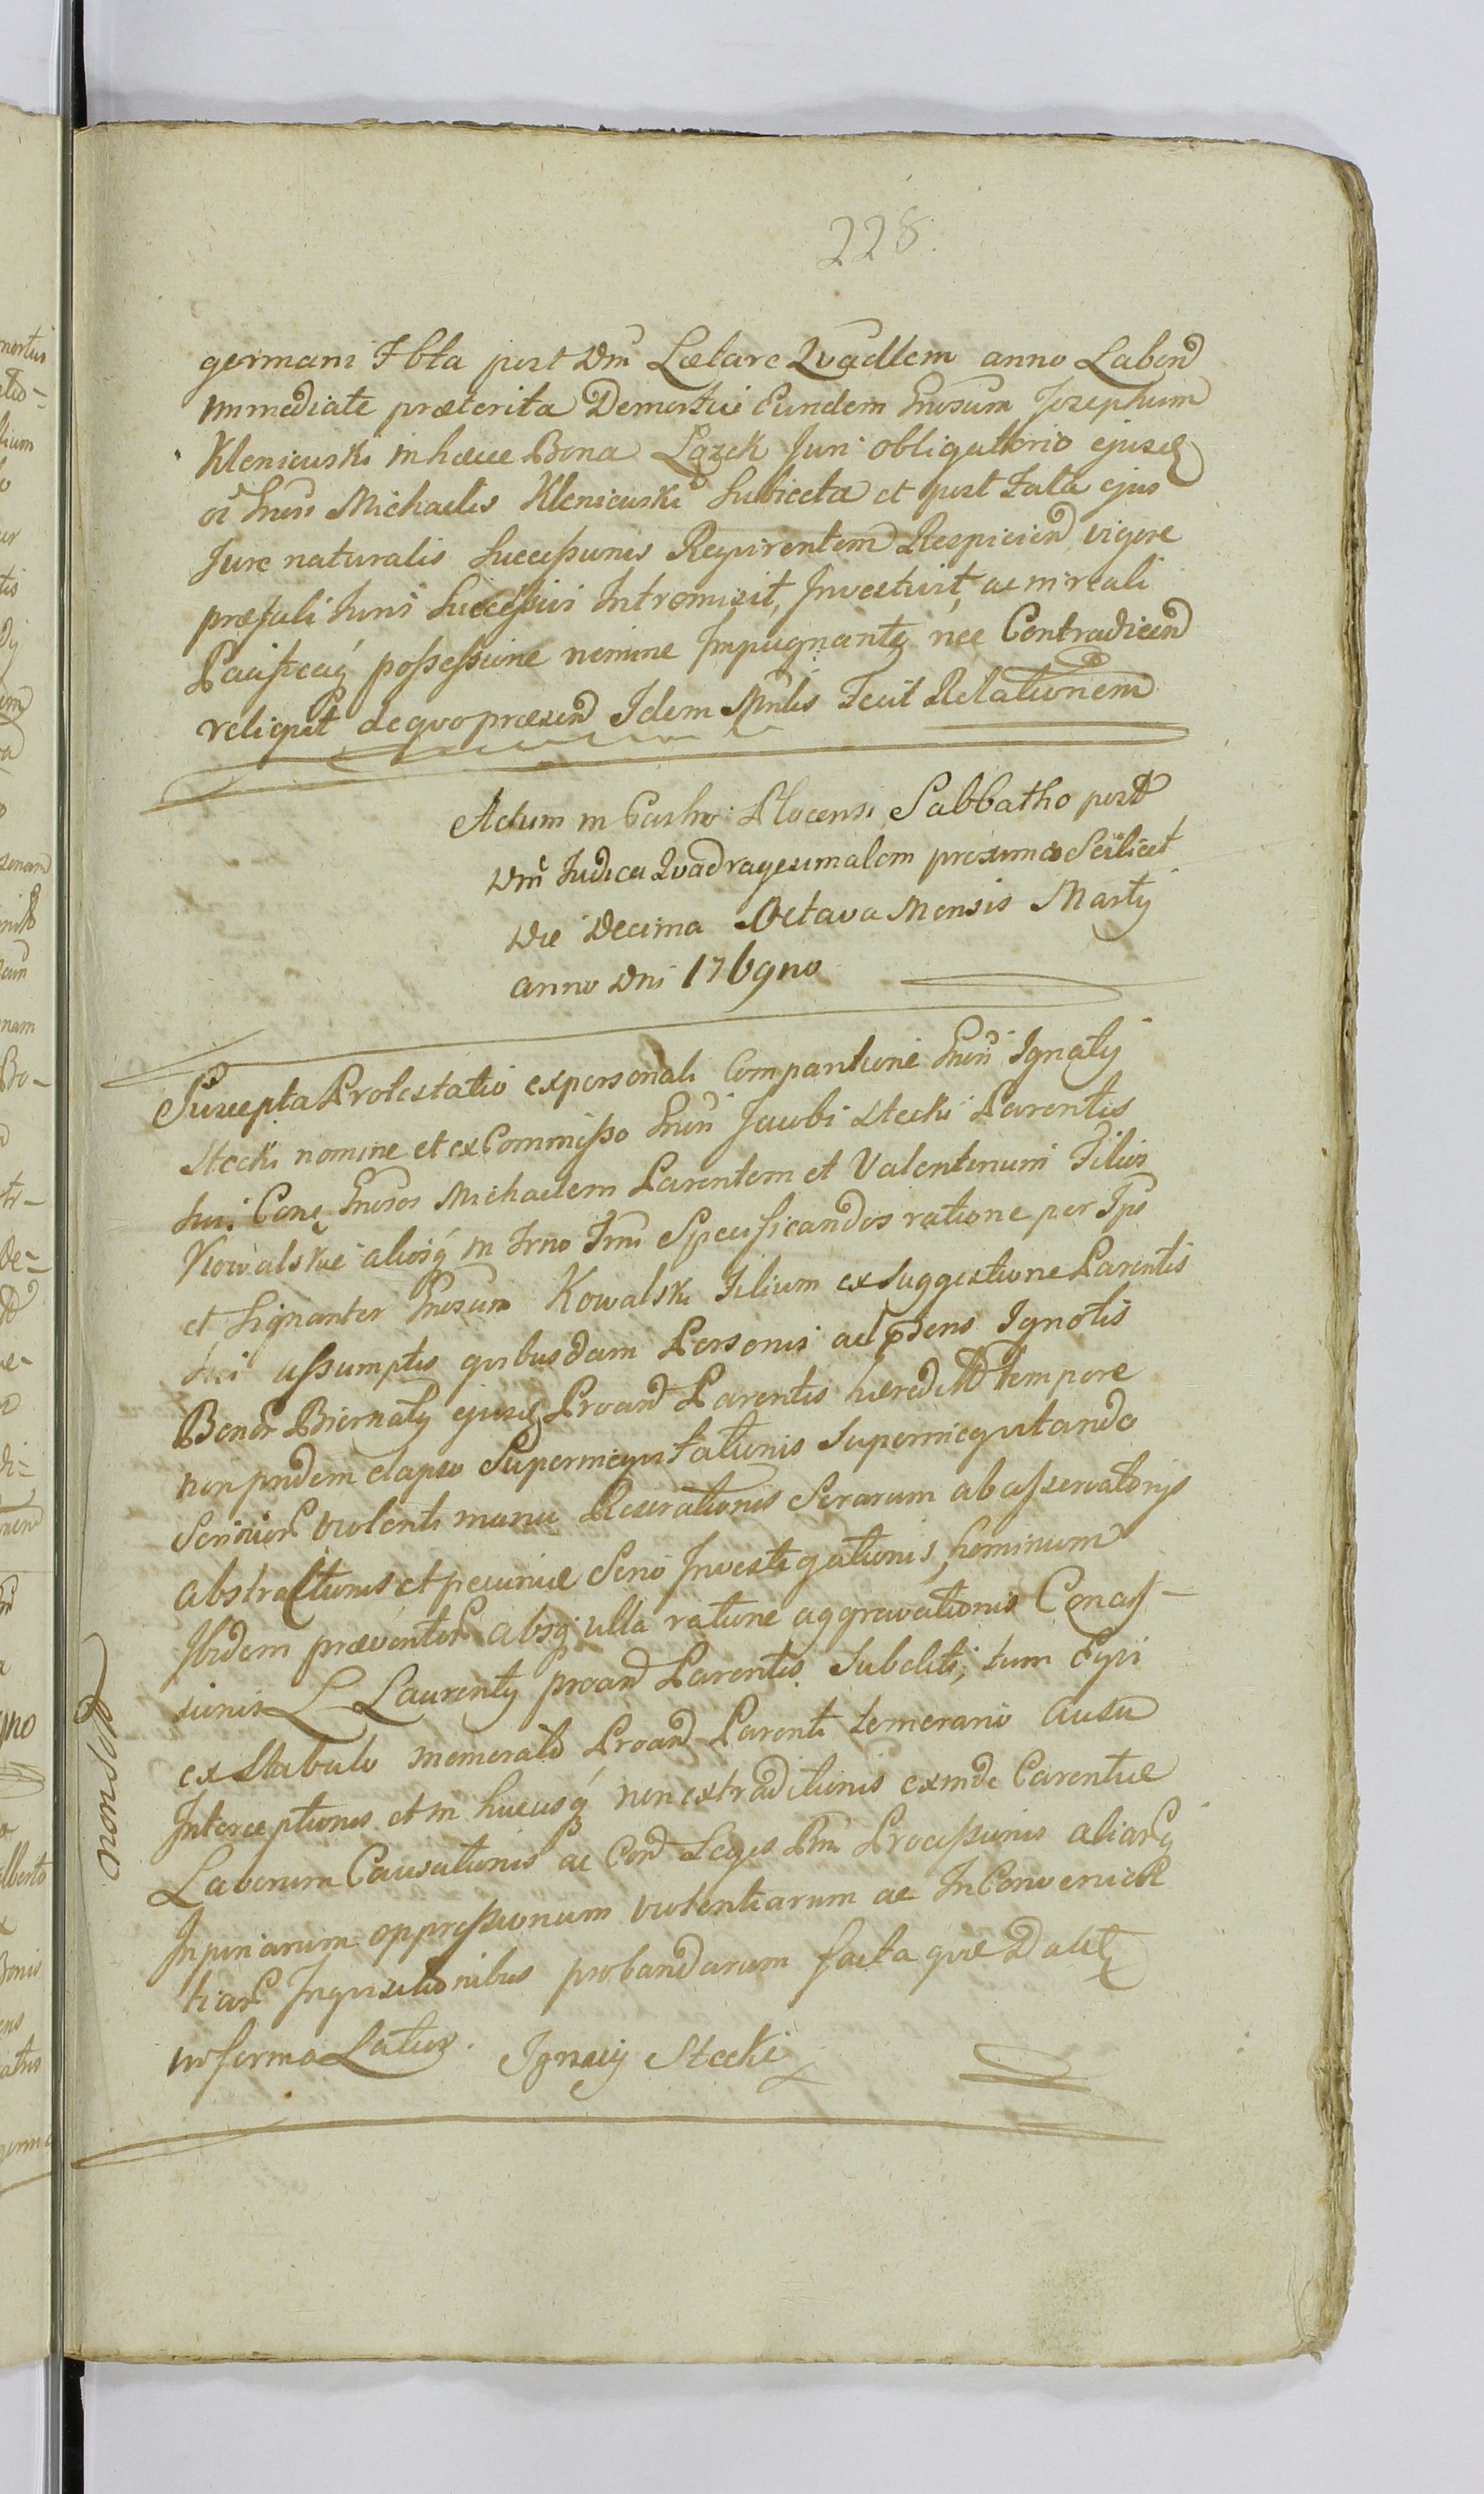 228.
germani Fbta post Dm̃ Lætare Qvadlem anno Laben̄d
Immediate præterita Demortui Eundem Gnosum Josephum
Kleniewski in hæce Bona Lązek Juri obligatorio ejusd
oĩ Gnosi Michaelis Kleniewski Subiecta et post Fata ejus
Jure naturalis Successionis Reqvirentem Respicien̄d, vigore
præfati Juris Successivi Intromisit, Investivit, ac in reali
Pacificaq́ possessione nemine Impugnante nec Contradicen̄d
reliqvit de qvo præsen̄d Idem Mnlis Fecit Relationem
Actum in Castro Plocensi Sabbatho post
Dm̃ Judica Qvadragesimalem proximo Scilicet
Die Decima Octava Mensis Martij
anno Dni 1769no
Suscepta Protestatio ex personali Comparitione Gnosi Ignatij
Stecki nomine et ex Commisso Gnosi Jacobi Stecki Parentis
Sui Con̨ Gnosos Michaelem Parentem et Valentinum Filios
Kowalskie aliosq́ in Trno Tmi Specificandos ratione per Ips
et Signanter Gnosum Kowalski Filium ex Suggestione Parentis
Sui assumptis qvibusdam Personis ad pdens Ignotis
Bonor Biernaty ejusd Proan̄d Parentis hæredit tempore
non pridem elapso Supermeqvitationis Supermeqvitando
violenti manu Reserationis Serarum ab asservatorijs
abstractionis et pecuniæ Investigationis, hominum
Ibidem præventor absq́ ulla ratione aggravationis Conas-
sionis L Laurentij proan̄d Parentis Subditi, tum Eqvi
ex Stabulo memorati Proan̄d Parenti temerario Ausu
Interceptionis et in hucusq́ non extraditionis exinde Carentiæ
Laborum Causationis ac Con̄d Leges Rni Processionis aliarq
Injuriarum oppressionum violentiarum ac InConvenien
tiar Inqvisitionibus probandarum facta qvæ Datt
in forma Latius. Ignacij Stecki
non sol